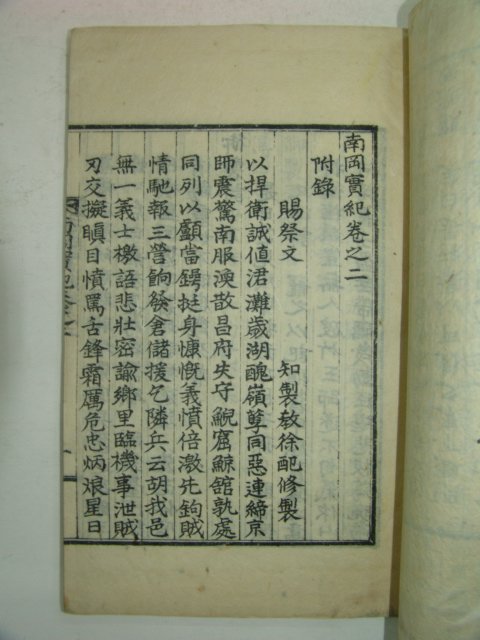 南岡實紀卷之二
附錄
賜祭文 知製敎徐配修製
以捍衛誠值君灘歲湖醜嶺孽同惡連締京
師震驚南服渙散昌府失守鯢窟鯨舘孰處
同列以顱當鍔挺身慷慨義憤倍激先鉤賊
情馳報三營餉發倉儲援乞隣兵云胡我邑
無一義士檄語悲壯密諭鄉里臨機事泄賊
刃交擬瞋目憤罵舌鋒霜厲危忠炳烺星日